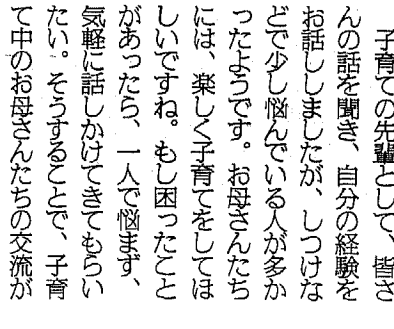 子育ての先輩として、皆さ
んの話を聞き、自分の経験を
お話ししましたが、しつけな
どで少し悩んでいる人が多か
ったようです。お母さんたち
には、楽しく子育てをしてほ
しいですね。もし困ったこと
があったら、一人で悩まず、
気軽に話しかけてきてもらい
たい。そうすることで、子育
て中のお母さんたちの交流が